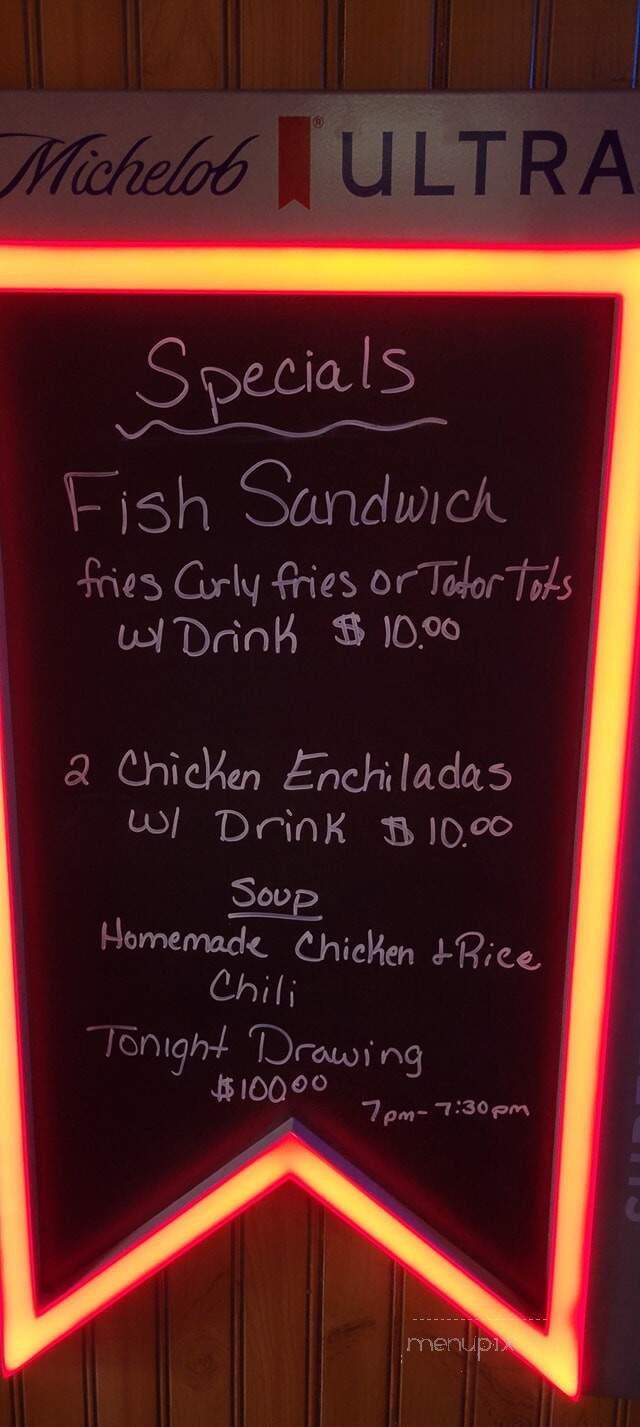 Michelob ® ULTRA
Specials
Fish Sandwich
fries Curly fries or Tator Tots
w/ Drink $10.00
2 Chicken Enchiladas
w/ Drink $10.00
Soup
Homemade Chicken & Rice
Chili
Tonight Drawing
$100.00
7pm- 7:30pm
menupix